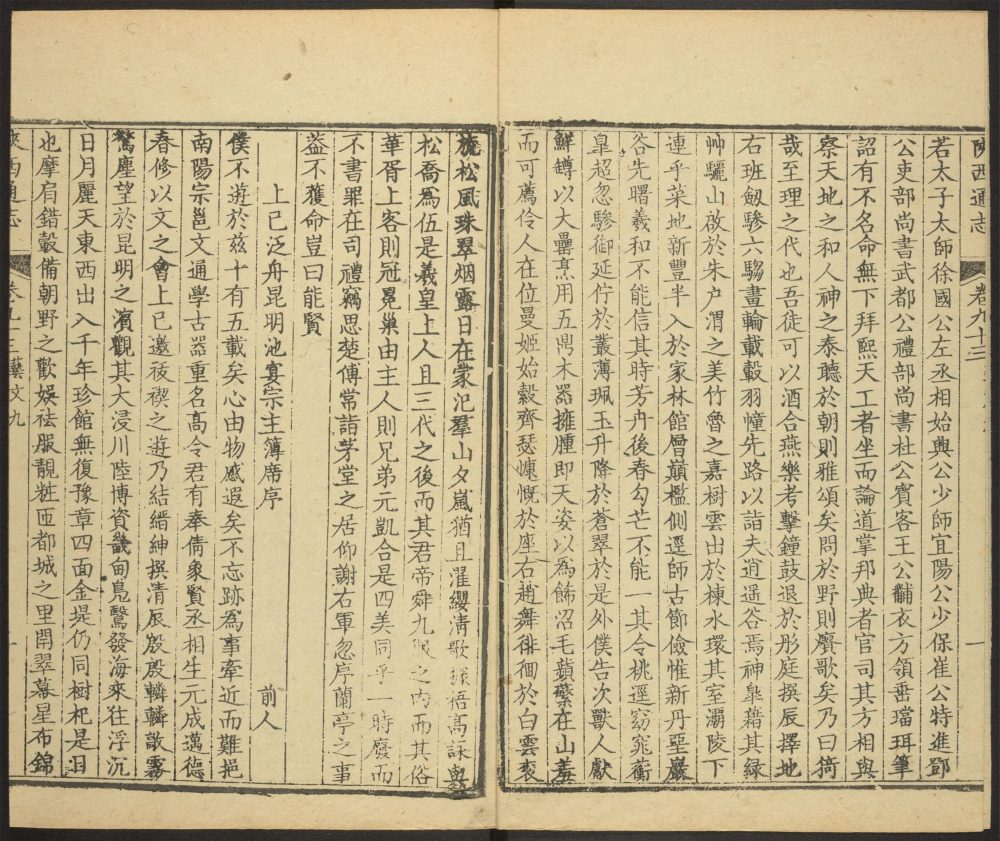 陝西通志
卷九十三
一
若太子太師徐國公左丞相始興公少師宜陽公少保崔公特進鄧
公吏部尚書武都公禮部尚書杜公賓客王公黼衣方領垂璫珥筆
詔有不名命無下拜熙天工者坐而論道掌邦典者官司其方相與
察天地之和人神之泰聽於朝則雅頌矣問於野則賡歌矣乃曰猗
哉至理之代也吾徒可以酒合燕樂考擊鐘鼓退於彤庭撰辰擇地
右班劔驂六騶畫輪載轂羽幢先路以詣夫逍遥谷焉神臯藉其緑
艸驪山啟於朱户渭之美竹魯之嘉樹雲出於棟水環其室灞陵下
連乎菜地新豐半入於家林館層巔檻側逕師古節儉惟新丹堊巖
谷先曙羲和不能信其時芳卉後春勾芒不能一其令桃逕窈窕蘅
臯超忽驂御延佇於叢薄珮玉升降於蒼翠於是外僕告次獸人獻
鮮罇以大罍烹用五鼎木器擁腫即天姿以為餙沼毛蘋蘩在山羞
而可薦伶人在位曼姬始縠齊瑟慷慨於座右趙舞徘徊於白雲衮
旒松風珠翠烟露日在濛汜羣山夕嵐猶且濯纓清歌據梧高詠與
松喬為伍是羲皇上人且三代之後而其君帝舜九服之内而其俗
華胥上客則冠冕巢由主人則兄弟元凱合是四美同乎一時廢而
不書罪在司禮竊思楚傅常詣茅堂之居仰謝右軍忽序蘭亭之事
蓋不獲命豈曰能賢
上巳泛舟昆明池宴宗主簿席序
前人
僕不遊於兹十有五載矣心由物感遐矣不忘跡為事牽近而難挹
南陽宗邕文通學古器重名高令君有奉倩象賢丞相生元成邁德
春修以文之會上巳邀祓禊之遊乃結縉紳撰清辰殷殷轔轔歊霧
驚塵望於昆明之濱觀其大浸川陸博資畿甸鳬鷖發海來往浮沉
日月麗天東西出入千年珍館無復豫章四面金堤仍同樹杞是日
也摩肩錯轂備朝野之歡娛袪服靚粧匝都城之里開翠幕星布錦
陝西通志
卷九十三 藝文九
一